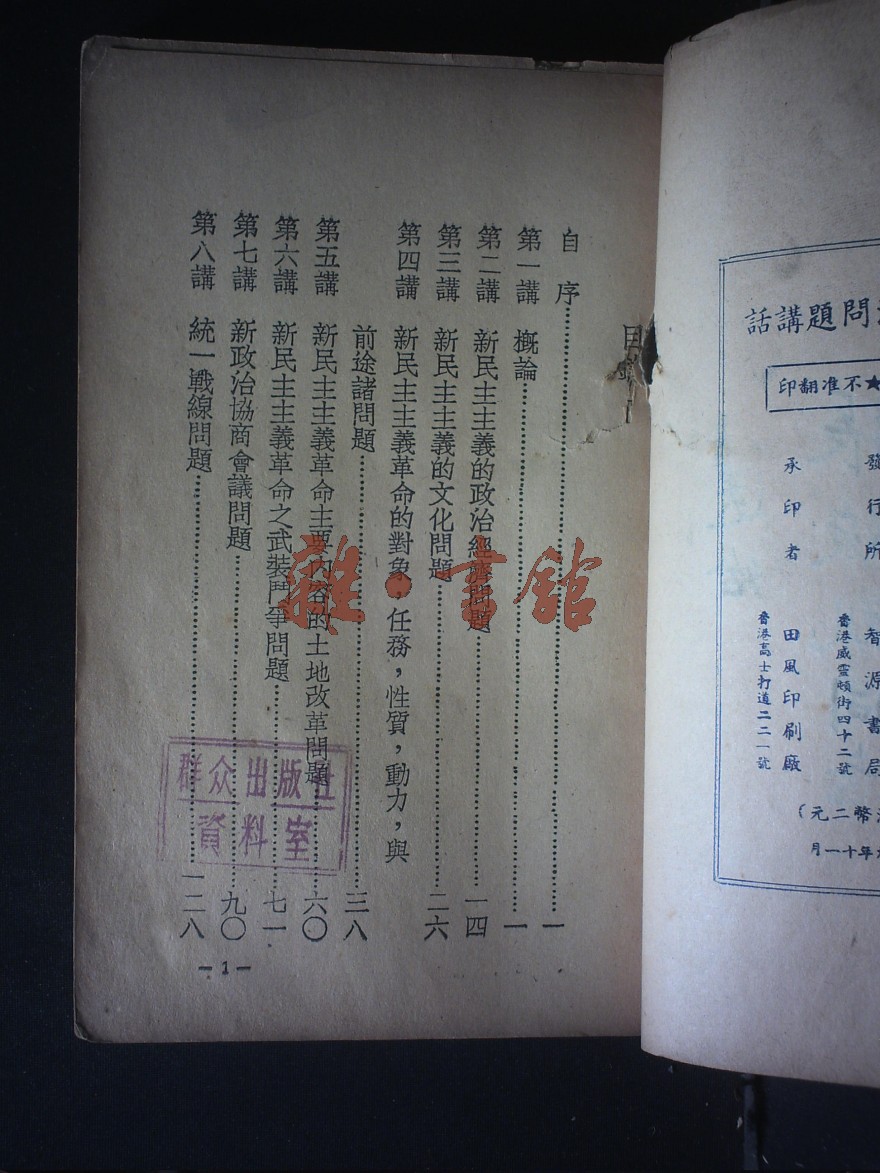 問題講話
★不准翻印
發行所 智源書局
香港威靈頓街四十二號
承印者 田風印刷廠
香港高士打道二二一號
幣二元）
年十一月
目錄
自序……一
第一講 概論……一
第二講 新民主主義的政治經濟問題……一四
第三講 新民主主義的文化問題……二六
第四講 新民主主義革命的對象，任務，性質，動力，與
前途諸問題……三八
第五講 新民主主義革命主要內容的土地改革問題……六〇
第六講 新民主主義革命之武裝鬥爭問題……七一
第七講 新政治協商會議問題……九〇
第八講 統一戰線問題……一二八
—1—
群众出版社
資料室
雜·書館